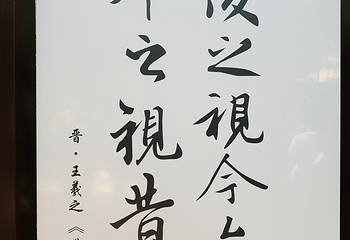 後之視今
之視昔
晉・王羲之《